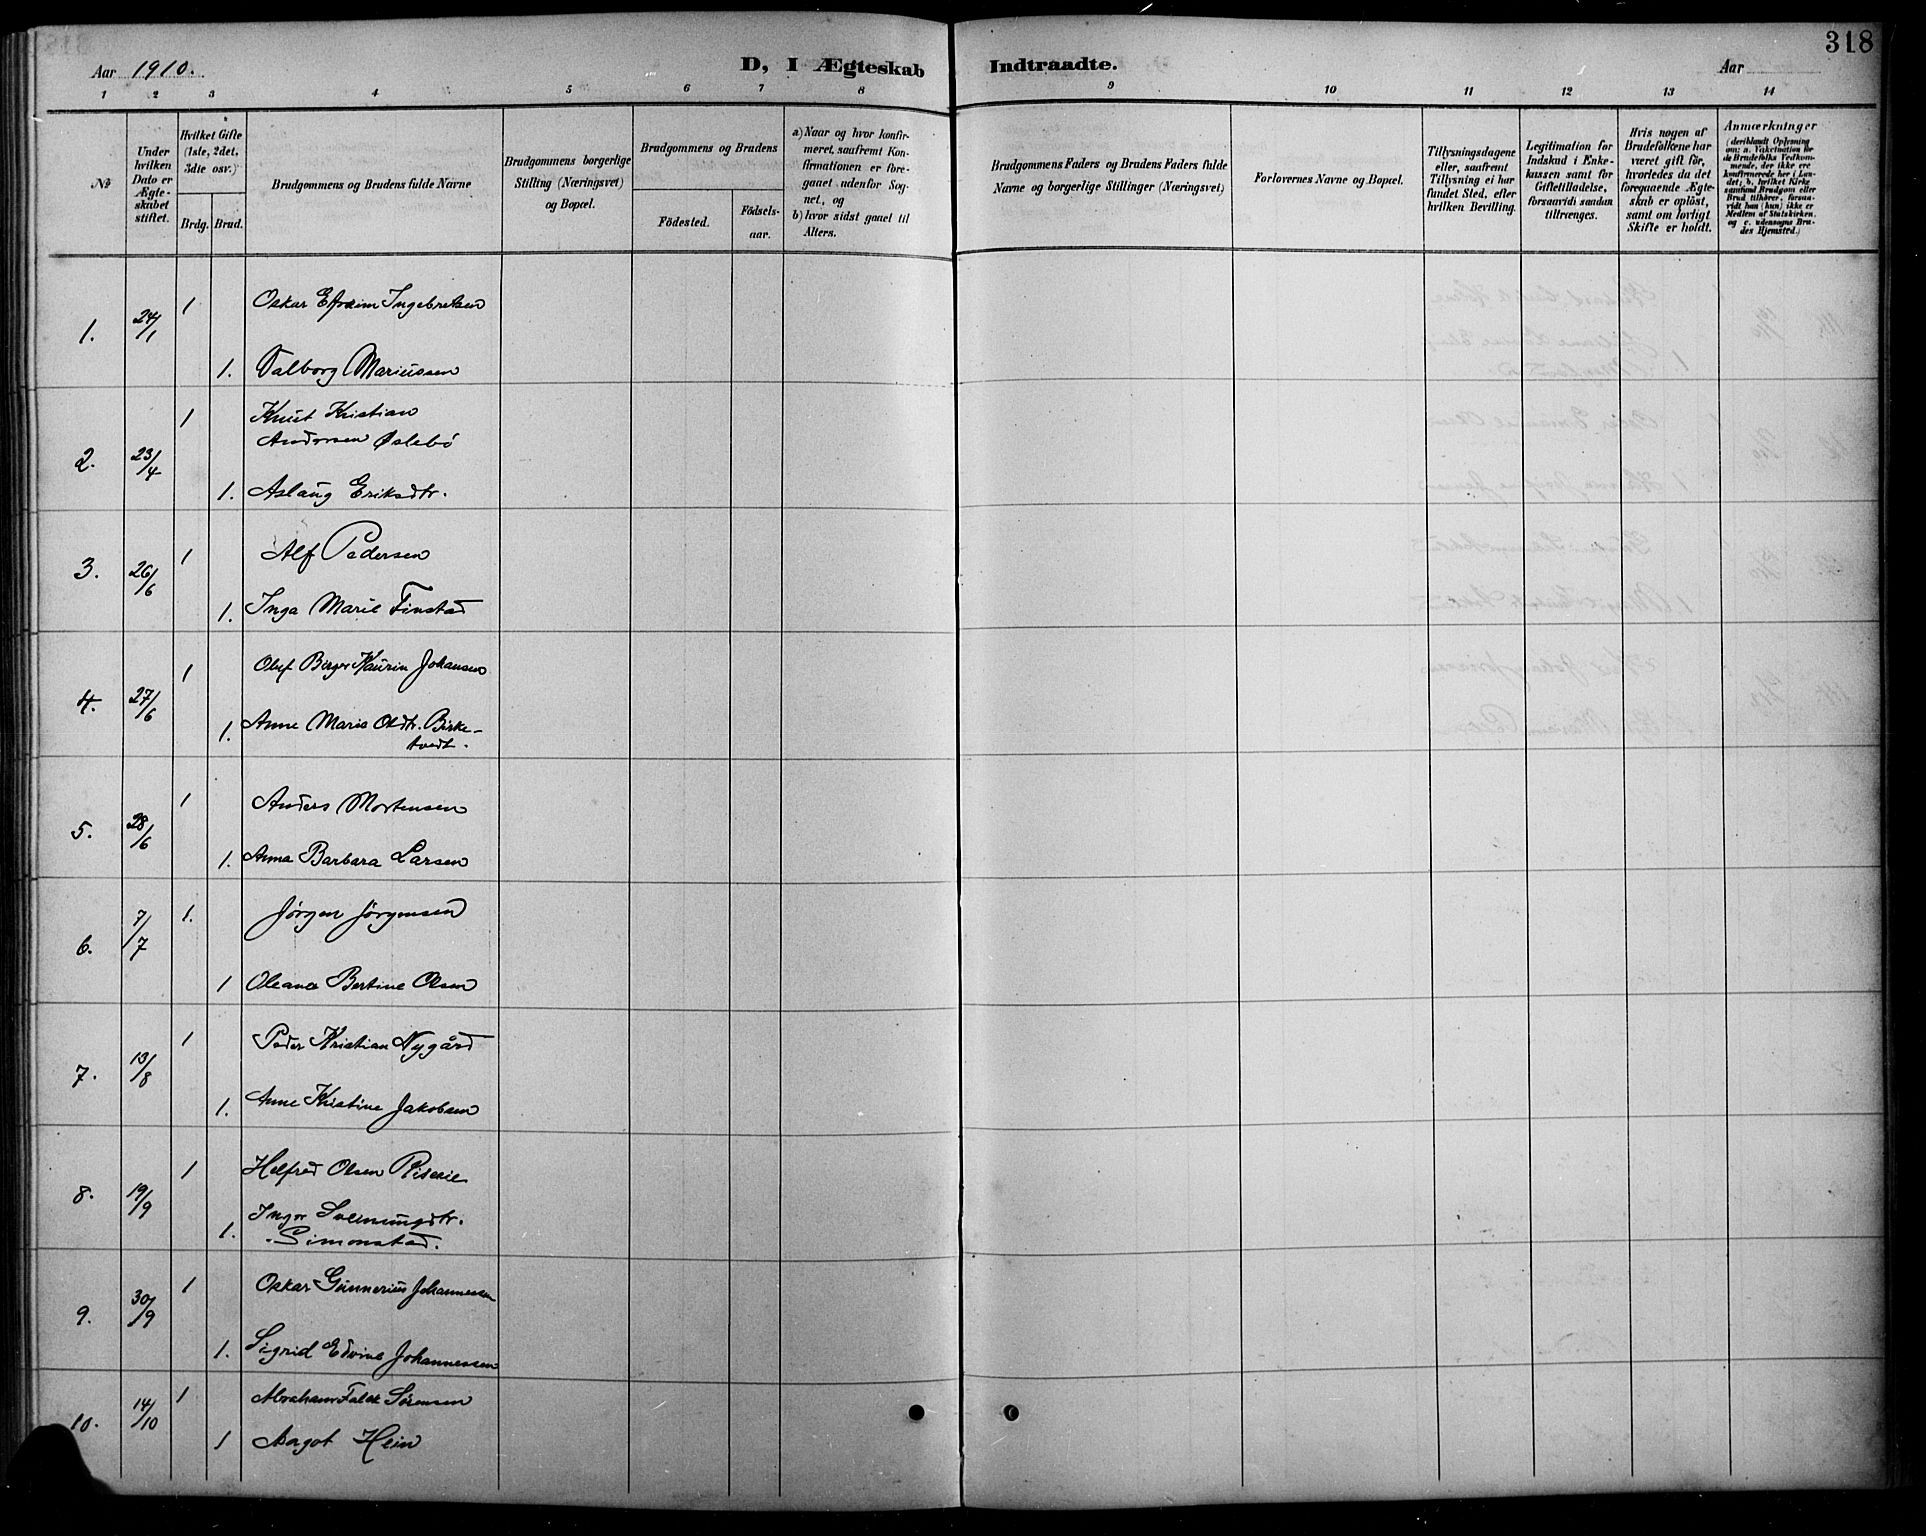 318
Aar 1910.
D, I Ægteskab
Indtraadte.
Aar
1 2 3 4 5 6 7 8 9 10 11 12 13 14
No
Under hvilken Dato er Ægteskabet stiftet.
Hvilket Gifte (1ste, 2det, 3die osv.)
Brdg. Brud.
Brudgommens og Brudens fulde Navne
Brudgommens borgerlige
Stilling (Næringsvet)
og Bopæl.
Brudgommens og Brudens
Födested.
Födsels-
aar.
a) Naar og hvor konfir-
meret, saafremt Kon-
firmationen er fore-
gaaet udenfor Sog-
net, og
b) hvor sidst gaaet til
Alters.
Brudgommens Faders og Brudens Faders fulde
Navne og borgerlige Stillinger (Næringsvet)
Forlovernes Navne og Bopæl.
Tillysningsdagene
eller, saafremt
Tillysning ei har
fundet Sted, efter
hvilken Bevilling.
Legitimation for
Indskud i Enke-
kassen samt for
Giftetilladelse,
forsaavidt saadan
tiltrænges.
Hvis nogen af
Brudefolkene har
været gift før,
hvorledes da det
foregaaende Ægte-
skab er oplöst,
samt om lovligt
Skifte er holdt.
Anmærkninger
(deriblandt Oplysning
om: a. Vakcination for
de Brudefolks Vedkom-
mende, der ikke ere
konfirmerede her i Lan-
det; b. hvilket Kirke-
samfund Brudgom eller
Brud tilhörer, forsaa-
vidt han (hun) ikke er
Medlem af Statskirken,
og c. udensogns Bru-
des Hjemsted.)
1. 24/1 1 Oskar Efraim Ingebretsen
1. Valborg Mariussen
2. 23/4 1 Knut Kristian
Andersen Øslebö
1. Aslaug Eriksdtr.
3. 26/6 1 Alf Pedersen
1. Inga Marie Finstad
4. 27/6 1 Oluf Birger Kaurin Johansen
1. Anne Maria Olsdtr. Birke-
tvedt.
5. 28/6 1 Anders Mortensen
1. Anna Barbara Larsen
6. 7/7 1. Jörgen Jörgensen
1 Oleana Bertine Olsen
7. 13/8 1 Peder Kristian Nygård
1. Anne Kristine Jakobsen
8. 19/9 1 Helfred Olsen
1. Inger Sveinungdtr.
Simonstad.
9. 30/9 1 Oskar Gunnerius Johannessen
1. Sigrid Edvine Johannessen
10. 14/10 1 Abraham Falck Sörensen
1 Margot Hein